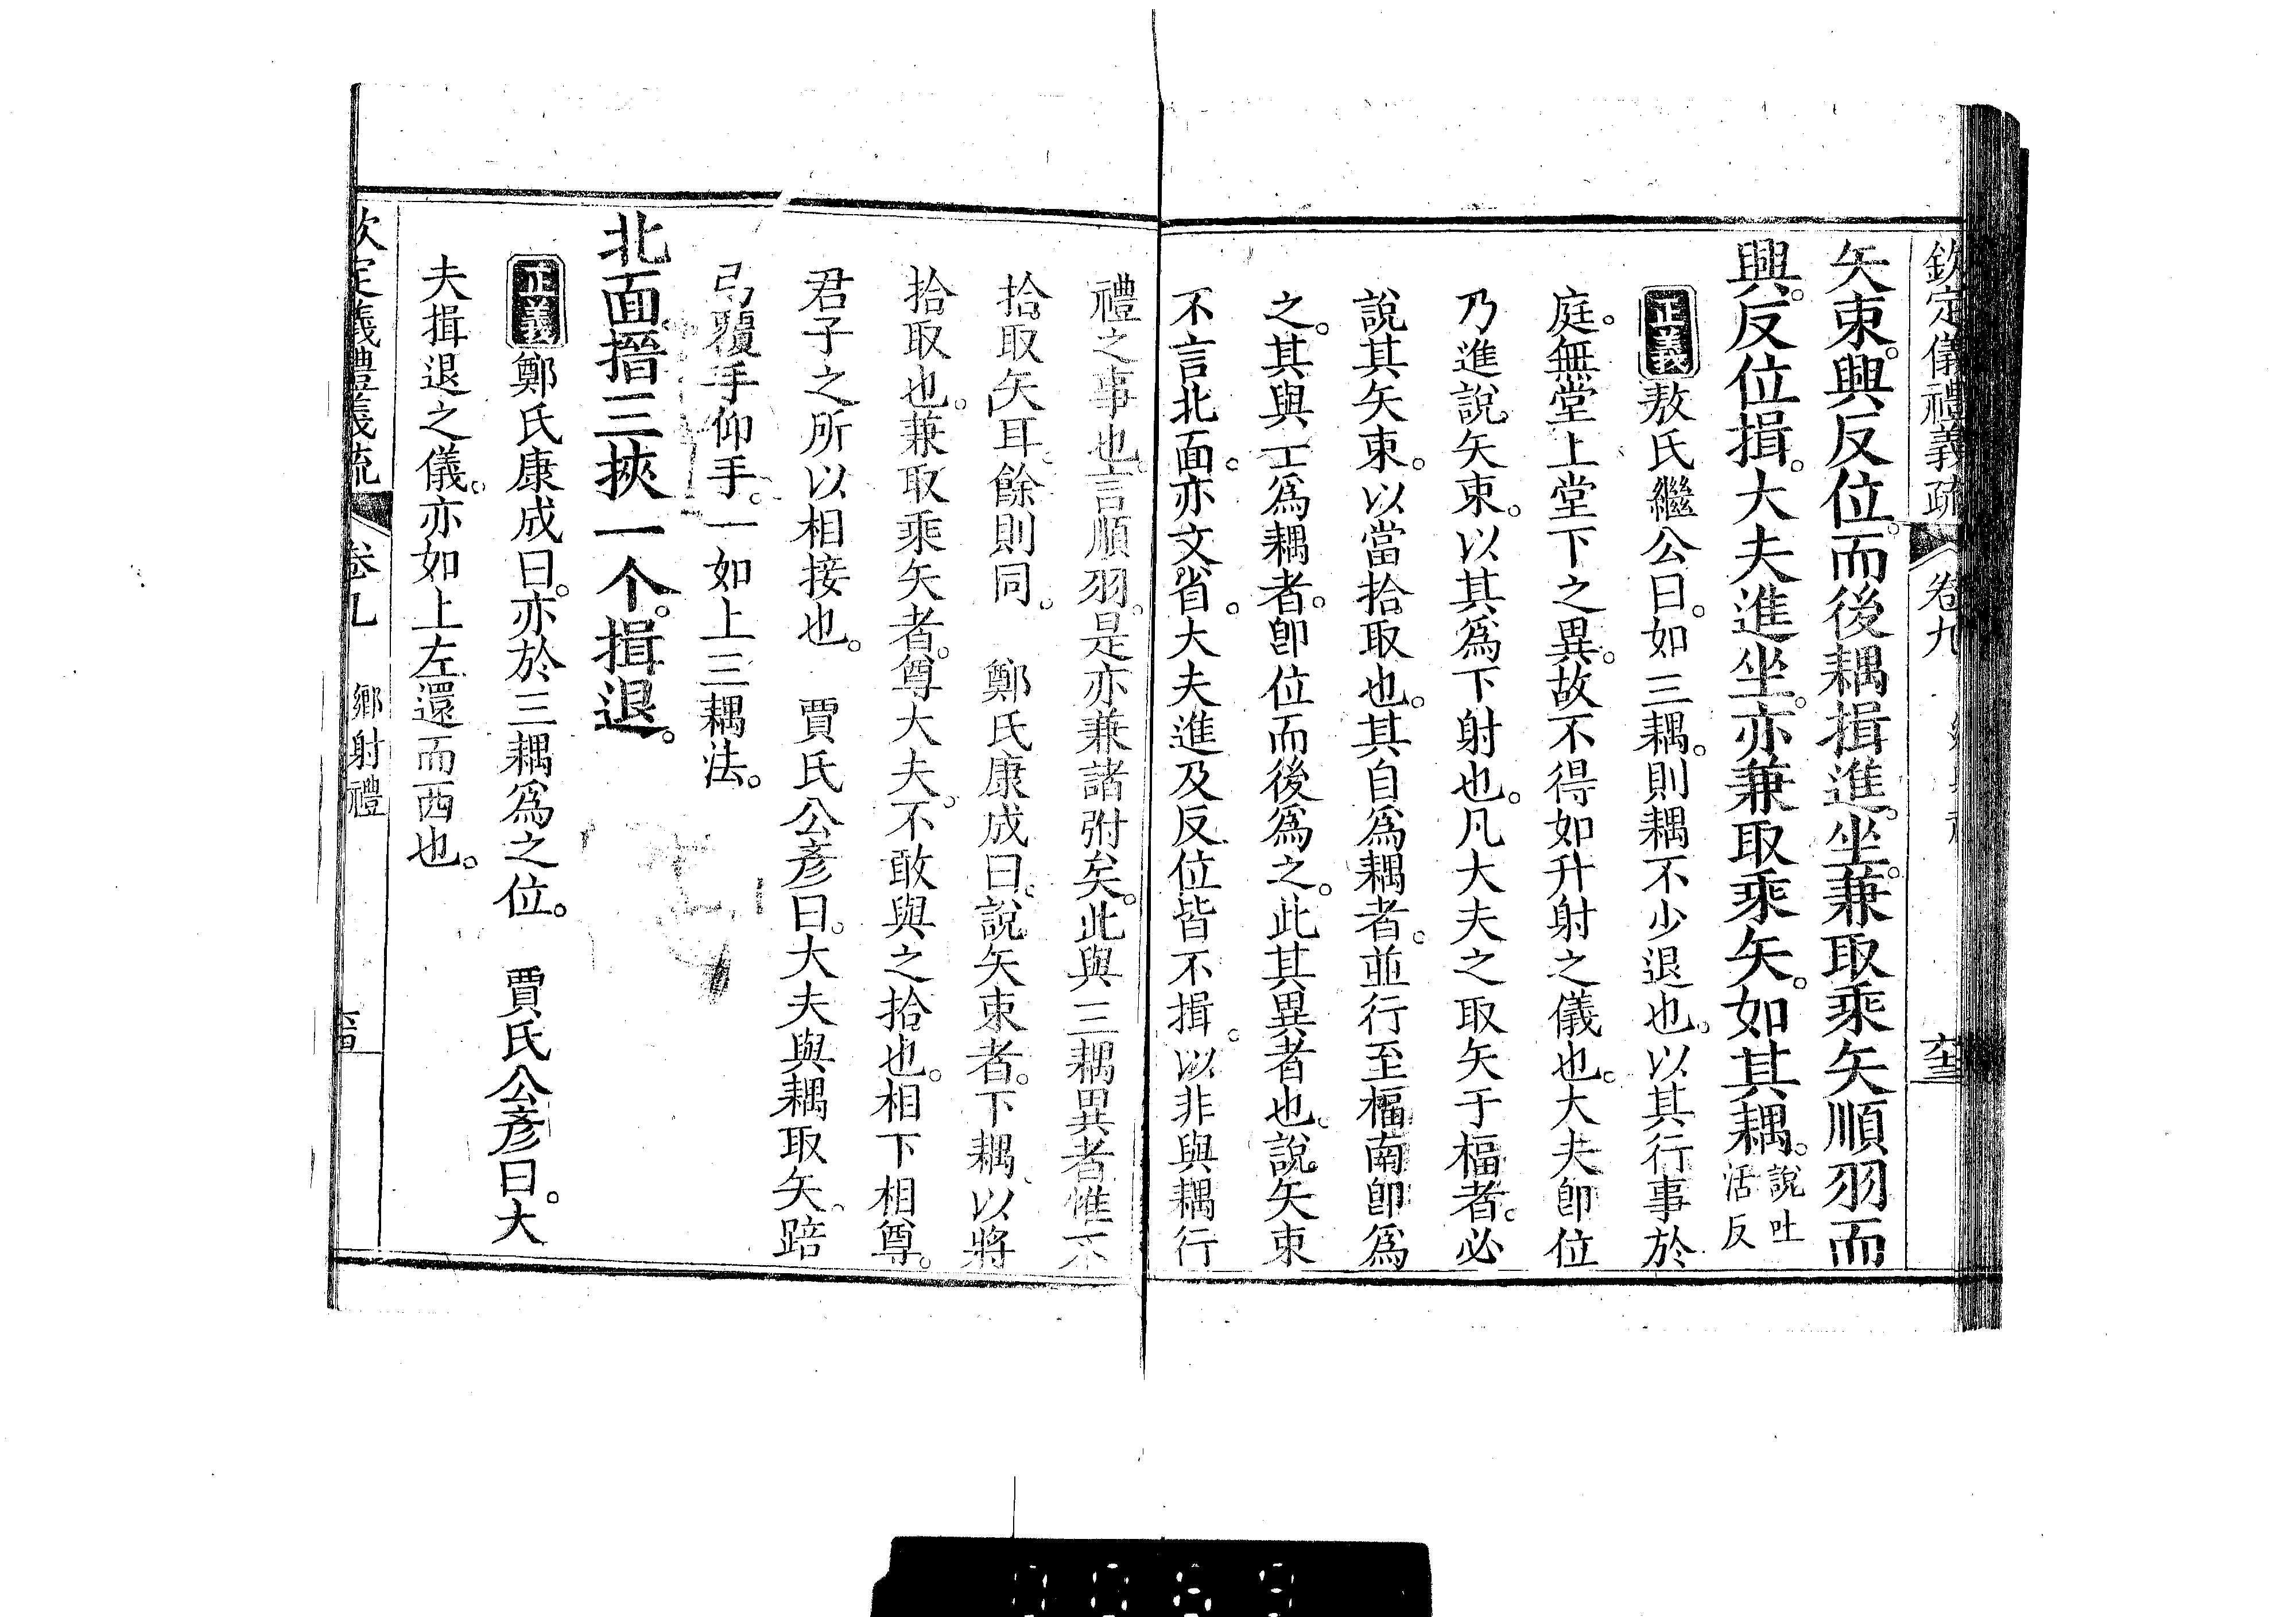 欽定儀禮義疏 卷九
矢束。興反位。而後耦揖進。坐。兼取乘矢順羽而
興。反位揖。大夫進坐。亦兼取乘矢。如其耦。說吐活反
正義敖氏繼公曰。如三耦。則耦不少退也。以其行事於
庭。無堂上堂下之異。故不得如升射之儀也。大夫卽位
乃進說矢束。以其爲下射也。凡大夫之取矢于楅者。必
說其矢束。以當拾取也。其自爲耦者。並行至楅南卽爲
之。其與士爲耦者。卽位而後爲之。此其異者也。說矢束
不言北面。亦文省。大夫進及反位皆不揖。以非與耦行
禮之事也。言順羽。是亦兼諸弣矣。此與三耦異者惟不
拾取矢耳。餘則同。 鄭氏康成曰。說矢束者。下耦。以將
拾取也。兼取乘矢者。尊大夫。不敢與之拾也。相下相尊。
君子之所以相接也。 賈氏公彥曰。大夫與耦取矢。踣
弓覆手仰手。一如上三耦法。
北面搢三挾一个。揖退。
正義鄭氏康成曰。亦於三耦爲之位。 賈氏公彥曰。大
夫揖退之儀。亦如上左還而西也。
欽定儀禮義疏 卷九 鄉射禮